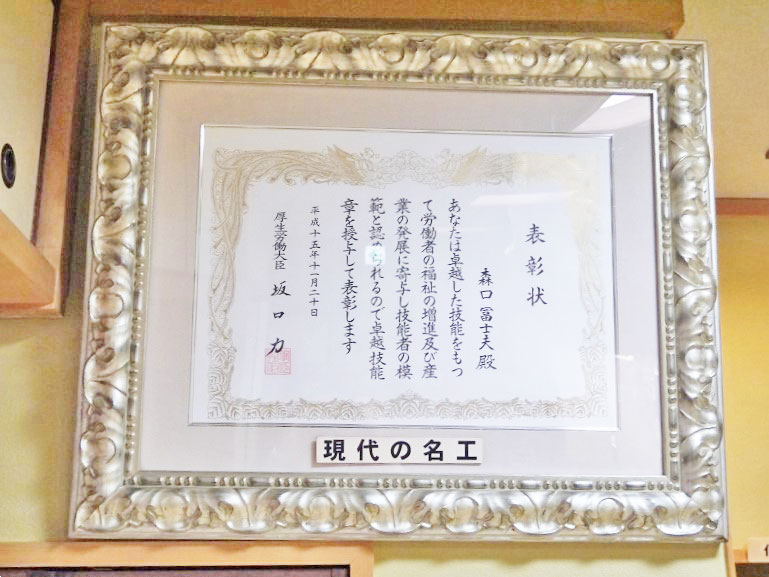 表彰状
森口冨士夫殿
あなたは卓越した技能をもつ
て労働者の福祉の増進及び産
業の発展に寄与し技能者の模
範と認められるので卓越技能
章を授与して表彰します
平成十五年十一月二十日
厚生労働大臣 坂口力
現代の名工